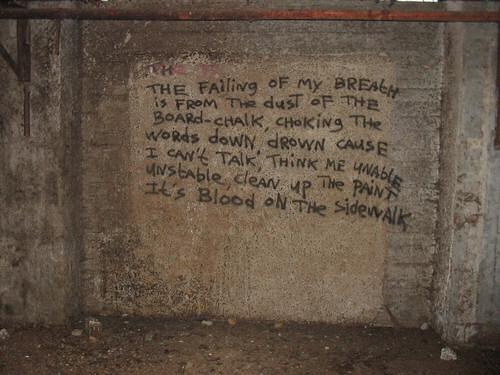 THE
THE FAiLiNG OF MY BREATH
iS FROM THE dUST OF THE
BOARD-CHALK, CHOKING THE
WORDS DOWN, DROWN CAUSE
I CAN'T TALK, THiNK ME UNABLE
UNSTABLE, CLEAN UP THE PAiNT
IT'S BLOOD ON THE SidEWALK